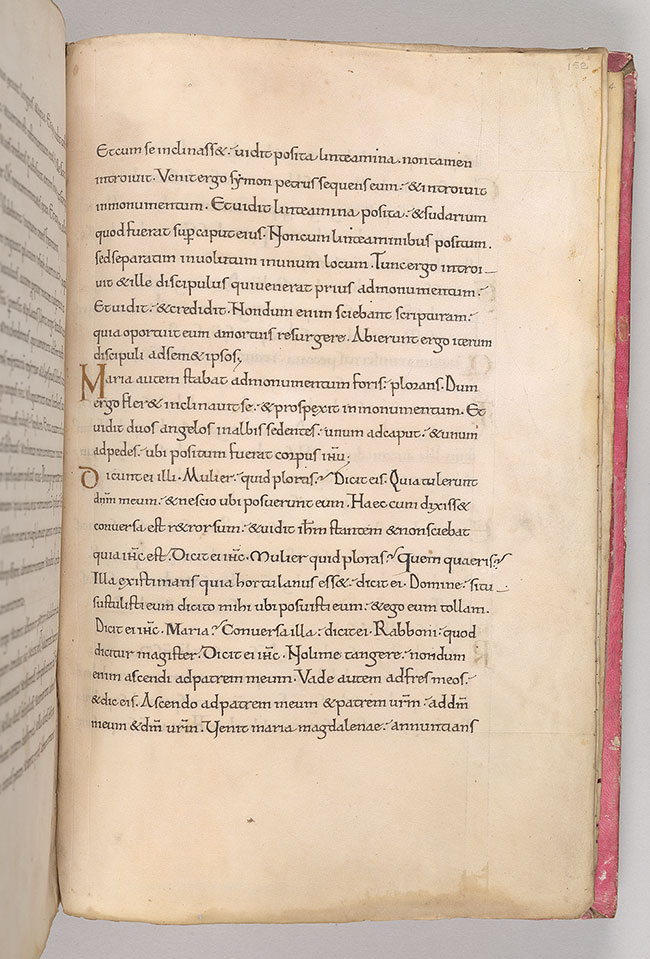 152
Et cum se inclinass&: uidit posita linteamina. non tamen
introiuit. Venit ergo symon petrus sequens eum: & introiuit
in monumentum. Et uidit linteamina posita: & sudarium
quod fuerat sup̄ caput eius. Non cum linteaminibus positum.
sed separatim inuolutum in unum locum. Tunc ergo introi_
uit & ille discipulus qui uenerat prius ad monumentum:
Et uidit: & credidit. Nondum enim sciebant scripturam:
quia oportuit eum a mortuis resurgere. Abierunt ergo iterum
discipuli ad sem& ipsos;
Maria autem stabat ad monumentum foris: plorans. Dum
ergo fler& inclinauit se: & prospexit in monumentum. Et
uidit duos angelos in albis sedentes: unum ad caput: & unum
ad pedes: ubi positum fuerat corpus ihu;
Dicunt ei illi. Mulier: quid ploras? Dicit eis. Quia tulerunt
dnm meum: & nescio ubi posuerunt eum. Haec cum dixiss&
conuersa est r&rorsum: & uidit ihm stantem & non sciebat
quia ihc est. Dicit ei ihc. Mulier quid ploras? Quem quaeris?
Illa existimans quia hortulanus ess&: dicit ei. Domine: si tu_
sustulisti eum dicito mihi ubi posuisti eum: & ego eum tollam.
Dicit ei ihc. Maria? Conuersa illa: dicit ei. Rabboni: quod
dicitur magister. Dicit ei ihc. Noli me tangere: nondum
enim ascendi ad patrem meum. Vade autem ad fres meos:
& dic eis. Ascendo ad patrem meum & patrem urm: ad dm
meum & dm urm. Venit maria magdalenae: annuntians